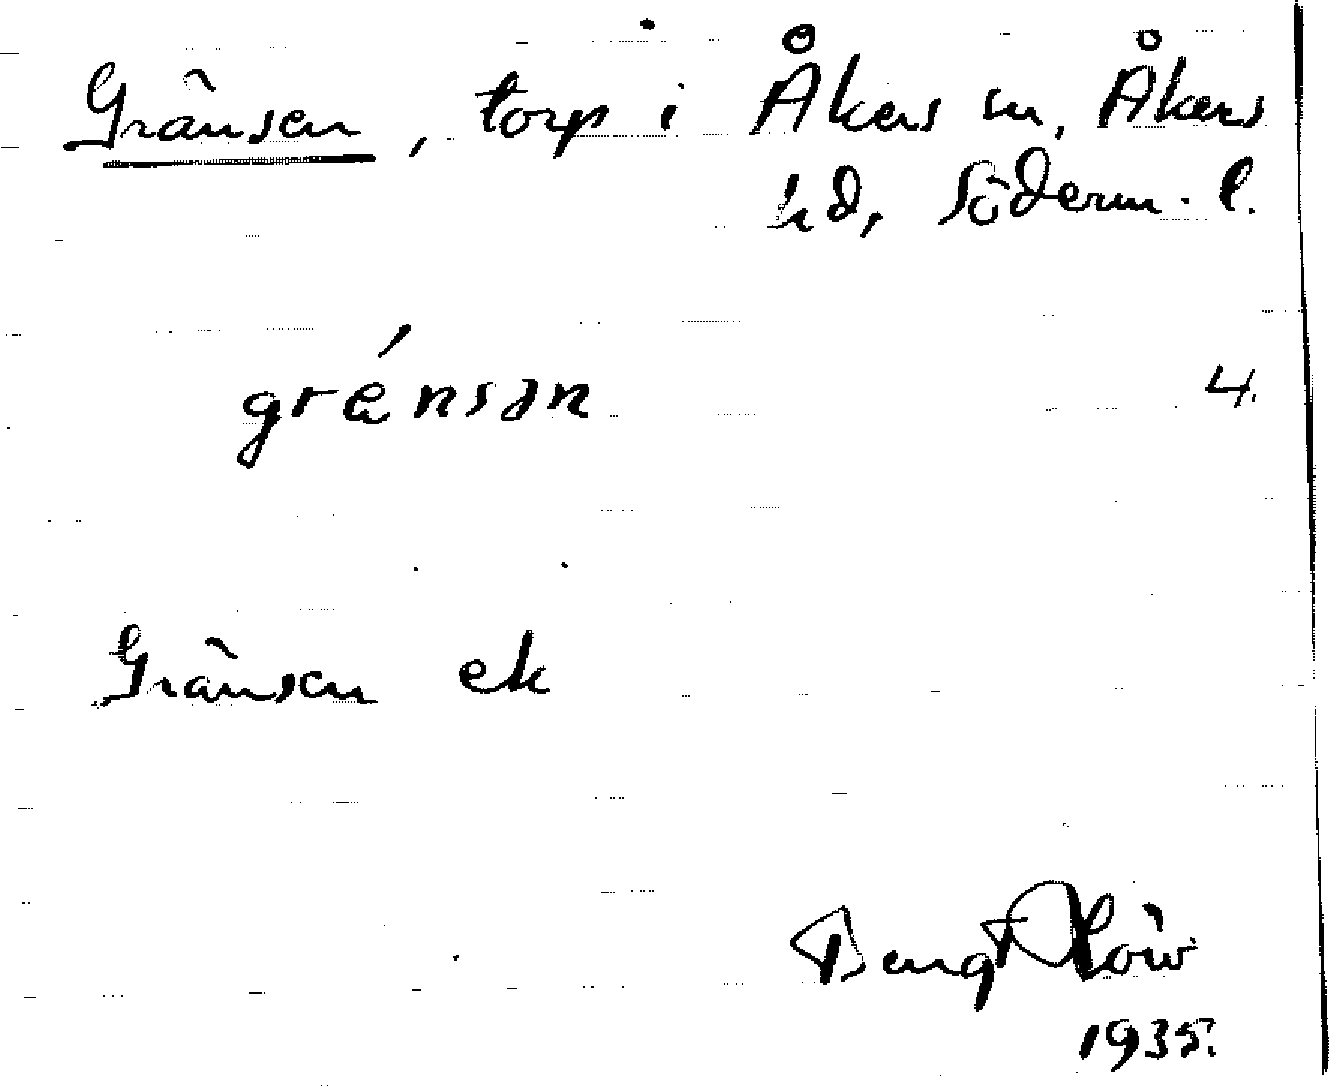 Gränsen, torp i Åkers sn, Åkers
hd, Söderm. l.
grénsən 4.
Gränsen ek
Bengt
1935.